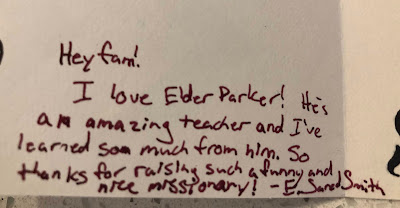 Hey fam!
I love Elder Parker! He's
an amazing teacher and I've
learned soo much from him. So
thanks for raising such a funny and
nice missionary! - E. Smith